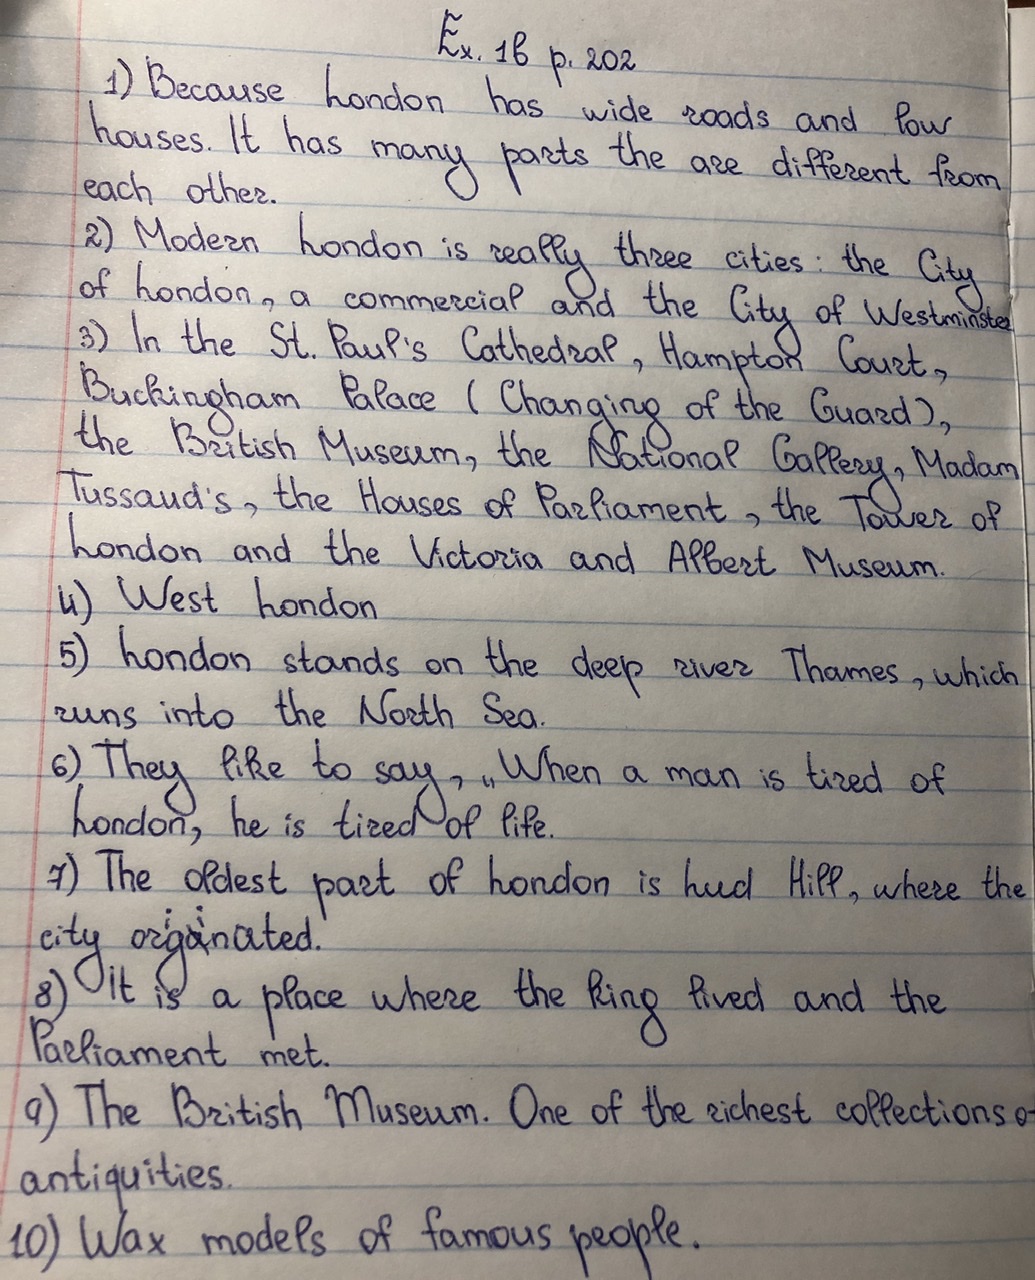 Ex. 1б p. 202
1) Because London has wide roads and low
houses. It has many parts the are different from
each other.
2) Modern London is really three cities: the City
of London, a commercial and the City of Westminster
3) In the St. Paul's Cathedral, Hampton Court,
Buckingham Palace (Changing of the Guard),
the British Museum, the National Gallery, Madam
Tussaud's, the Houses of Parliament, the Tower of
London and the Victoria and Albert Museum.
4) West London
5) London stands on the deep river Thames, which
runs into the North Sea.
6) They like to say, „When a man is tired of
London, he is tired of life.
7) The oldest part of London is Lud Hill, where the
city originated.
8) it is a place where the king lived and the
Parliament met.
9) The British Museum. One of the richest collections of
antiquities.
10) Wax models of famous people.